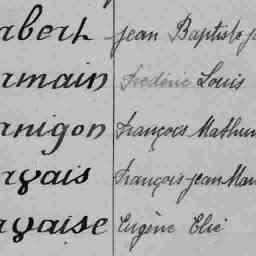 abert Jean Baptiste
amain Frédéric Louis
anigon François Mathur
avais François Jean Mar
avaise Eugène Elie